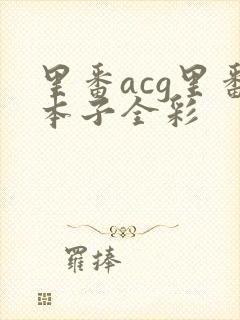 里番acg里番
本子全彩
羅捧